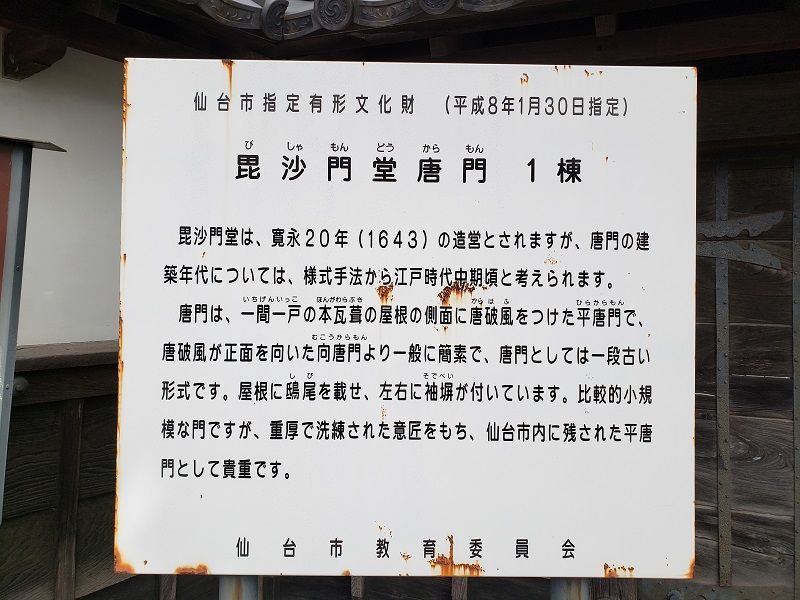 仙台市指定有形文化財　(平成8年1月30日指定)
び しゃ もん どう から もん
毘沙門堂唐門　1棟
毘沙門堂は、寛永20年(1643)の造営とされますが、唐門の建
築年代については、様式手法から江戸時代中期頃と考えられます。
いちげんいっこ ほんがわらぶき からはふ ひらからもん
唐門は、一間一戸の本瓦葺の屋根の側面に唐破風をつけた平唐門で、
むこうからもん
唐破風が正面を向いた向唐門より一般に簡素で、唐門としては一段古い
しび そでべい
形式です。屋根に鴟尾を載せ、左右に袖塀が付いています。比較的小規
模な門ですが、重厚で洗練された意匠をもち、仙台市内に残された平唐
門として貴重です。
仙台市教育委員会